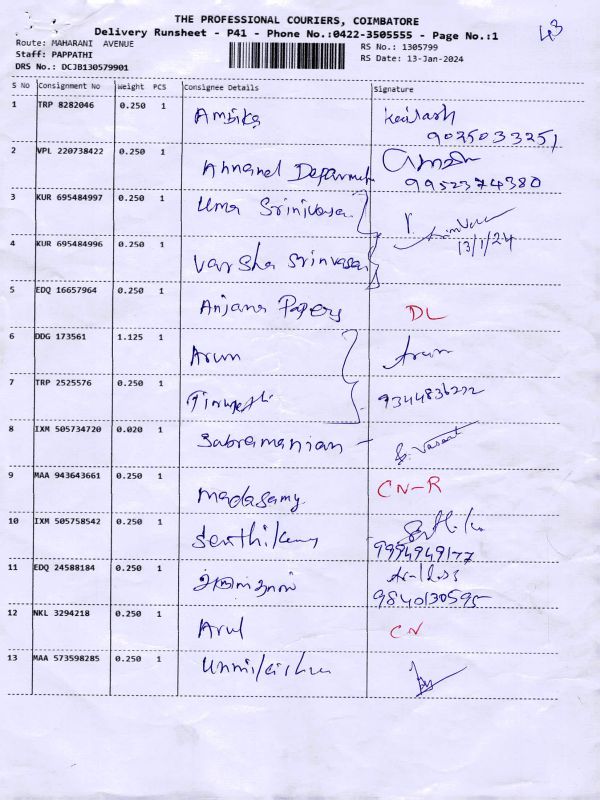 THE PROFESSIONAL COURIERS, COIMBATORE
Delivery Runsheet - P41 - Phone No.:0422-3505555 - Page No.:1
43
Route: MAHARANI AVENUE
RS No.: 1305799
Staff: PAPPATHI
RS Date: 13-Jan-2024
DRS No.: DCJB130579901
S No Consignment No Weight PCS Consignee Details Signature
1 TRP 8282046 0.250 1 Ambika Kailash
9025033251
2 VPL 220738422 0.250 1
9952374380
3 KUR 695484997 0.250 1 Uma Srinivasan
13/1/24
4 KUR 695484996 0.250 1 Varsha Srinivasan
5 EDQ 16657964 0.250 1 Anjana Papers DL
6 DDG 173561 1.125 1 Arun Arun
7 TRP 2525576 0.250 1 9344836272
8 IXM 505734720 0.020 1 Subramanian - S. Vasant
9 MAA 943643661 0.250 1 Madasamy CN-R
10 IXM 505758542 0.250 1
9994949177
11 EDQ 24588184 0.250 1
9840130595
12 NKL 3294218 0.250 1 Arul CN
13 MAA 573598285 0.250 1